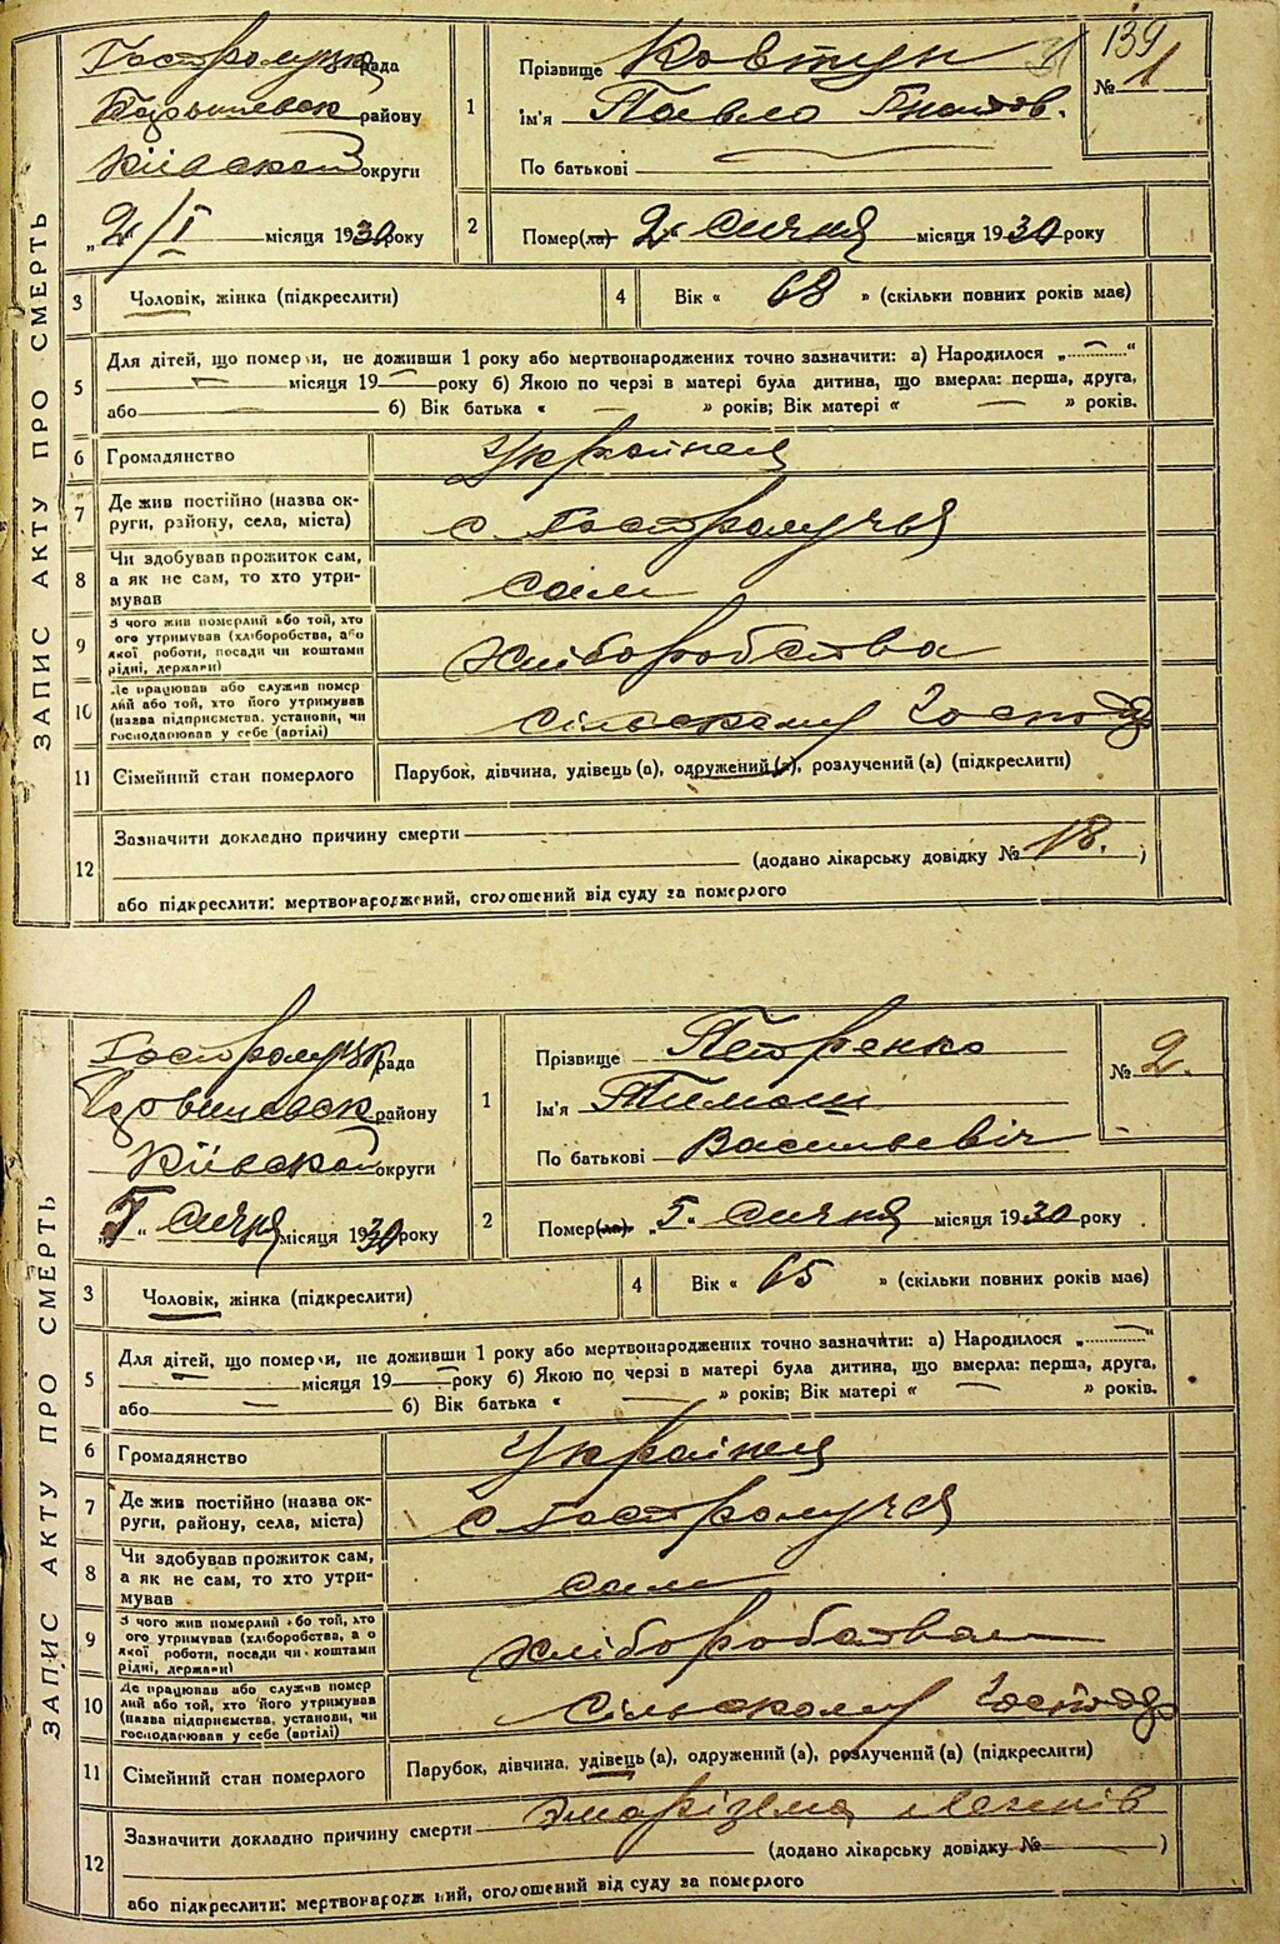 ЗАПИС АКТУ ПРО СМЕРТЬ
Гостролуцка рада
району
Київской округи
„2“/I місяця 1930 року
1
Прізвище Ковтун
Ім'я Павло Гнатов.
По батькові
139
№ 1
2
Помер(ла) 2 сичня місяця 1930 року
3
Чоловік, жінка (підкреслити)
4
Вік « 68 » (скільки повних років має)
5
Для дітей, що померли, не доживши 1 року або мертвонароджених точно зазначити: а) Народилося „ “
місяця 19 року б) Якою по черзі в матері була дитина, що вмерла: перша, друга,
або б) Вік батька « — » років; Вік матері « — » років.
6
Громадянство
Українец
7
Де жив постійно (назва ок-
руги, району, села, міста)
с Гостролуччя
8
Чи здобував прожиток сам,
а як не сам, то хто утри-
мував
сам
9
З чого жив померлий або той, хто
ого утримував (хліборобства, або
якої роботи, посади чи коштами
рідні, держави)
Хліборобства
10
Де працював або служив помер
лий або той, хто його утримував
(назва підприємства, установи, чи
господарював у себе (артілі)
Сільскому Господ
11
Сімейний стан померлого
Парубок, дівчина, удівець (а), одружений (а), розлучений (а) (підкреслити)
12
Зазначити докладно причину смерти
(додано лікарську довідку № 18. )
або підкреслити: мертвонароджений, оголошений від суду за померлого
ЗАПИС АКТУ ПРО СМЕРТЬ
Гостролуцк рада
району
Київской округи
„5“ сичня місяця 1930 року
1
Прізвище Петренко
Ім'я Тимош
По батькові Васильевіч
№ 2.
2
Помер(ла) „5. сичня місяця 1930 року
3
Чоловік, жінка (підкреслити)
4
Вік « 65 » (скільки повних років має)
5
Для дітей, що померли, не доживши 1 року або мертвонароджених точно зазначити: а) Народилося „ “
місяця 19 року б) Якою по черзі в матері була дитина, що вмерла: перша, друга,
або — б) Вік батька « — » років; Вік матері « — » років.
6
Громадянство
Українец
7
Де жив постійно (назва ок-
руги, району, села, міста)
с Гостролуччя
8
Чи здобував прожиток сам,
а як не сам, то хто утри-
мував
сам
9
З чого жив померлий або той, хто
ого утримував (хліборобства, а о
якої роботи, посади чи коштами
рідні, держави)
Хліборобством
10
Де працював або служив помер
лий або той, хто його утримував
(назва підприємства, установи, чи
господарював у себе (артілі)
Сільскому Господ
11
Сімейний стан померлого
Парубок, дівчина, удівець (а), одружений (а), розлучений (а) (підкреслити)
12
Зазначити докладно причину смерти Эмфізема легенів
(додано лікарську довідку № )
або підкреслити: мертвонароджений, оголошений від суду за померлого